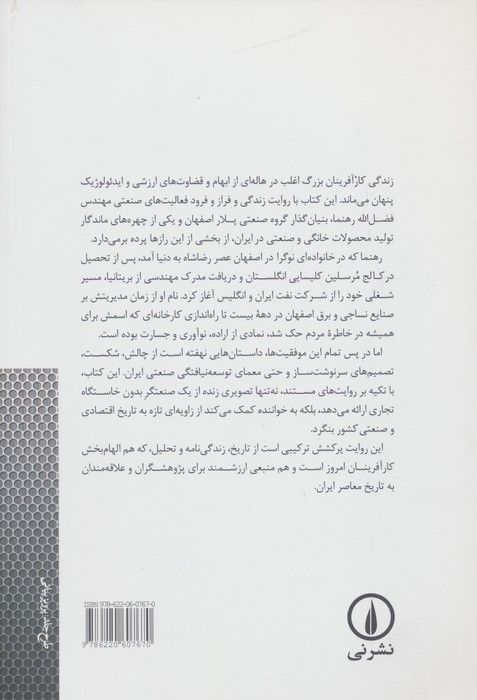 زندگی کارآفرینان بزرگ اغلب در هاله‌ای از ابهام و قضاوت‌های ارزشی و ایدئولوژیک
پنهان می‌ماند. این کتاب با روایت زندگی و فراز و فرود فعالیت‌های صنعتی مهندس
فضل‌الله رهنما، بنیان‌گذار گروه صنعتی پلار اصفهان و یکی از چهره‌های ماندگار
تولید محصولات خانگی و صنعتی در ایران، از بخشی از این رازها پرده برمی‌دارد.
رهنما که در خانواده‌ای نوگرا در اصفهان عصر رضاشاه به دنیا آمد، پس از تحصیل
در کالج مُرسلین کلیسایی انگلستان و دریافت مدرک مهندسی از بریتانیا، مسیر
شغلی خود را از شرکت نفت ایران و انگلیس آغاز کرد. نام او از زمان مدیریتش بر
صنایع نساجی و برق اصفهان در دههٔ بیست تا راه‌اندازی کارخانه‌ای که اسمش برای
همیشه در خاطرهٔ مردم حک شد، نمادی از اراده، نوآوری و جسارت بوده است.
اما در پس تمام این موفقیت‌ها، داستان‌هایی نهفته است از چالش، شکست،
تصمیم‌های سرنوشت‌ساز و حتی معمای توسعه‌نیافتگی صنعتی ایران. این کتاب،
با تکیه بر روایت‌های مستند، نه‌تنها تصویری زنده از یک صنعتگر بدون خاستگاه
تجاری ارائه می‌دهد، بلکه به خواننده کمک می‌کند از زاویه‌ای تازه به تاریخ اقتصادی
و صنعتی کشور بنگرد.
این روایت پرکشش ترکیبی است از تاریخ، زندگی‌نامه و تحلیل، که هم الهام‌بخش
کارآفرینان امروز است و هم منبعی ارزشمند برای پژوهشگران و علاقه‌مندان
به تاریخ معاصر ایران.
ISBN 978-622-06-0767-0
9786220607670
نشرنی